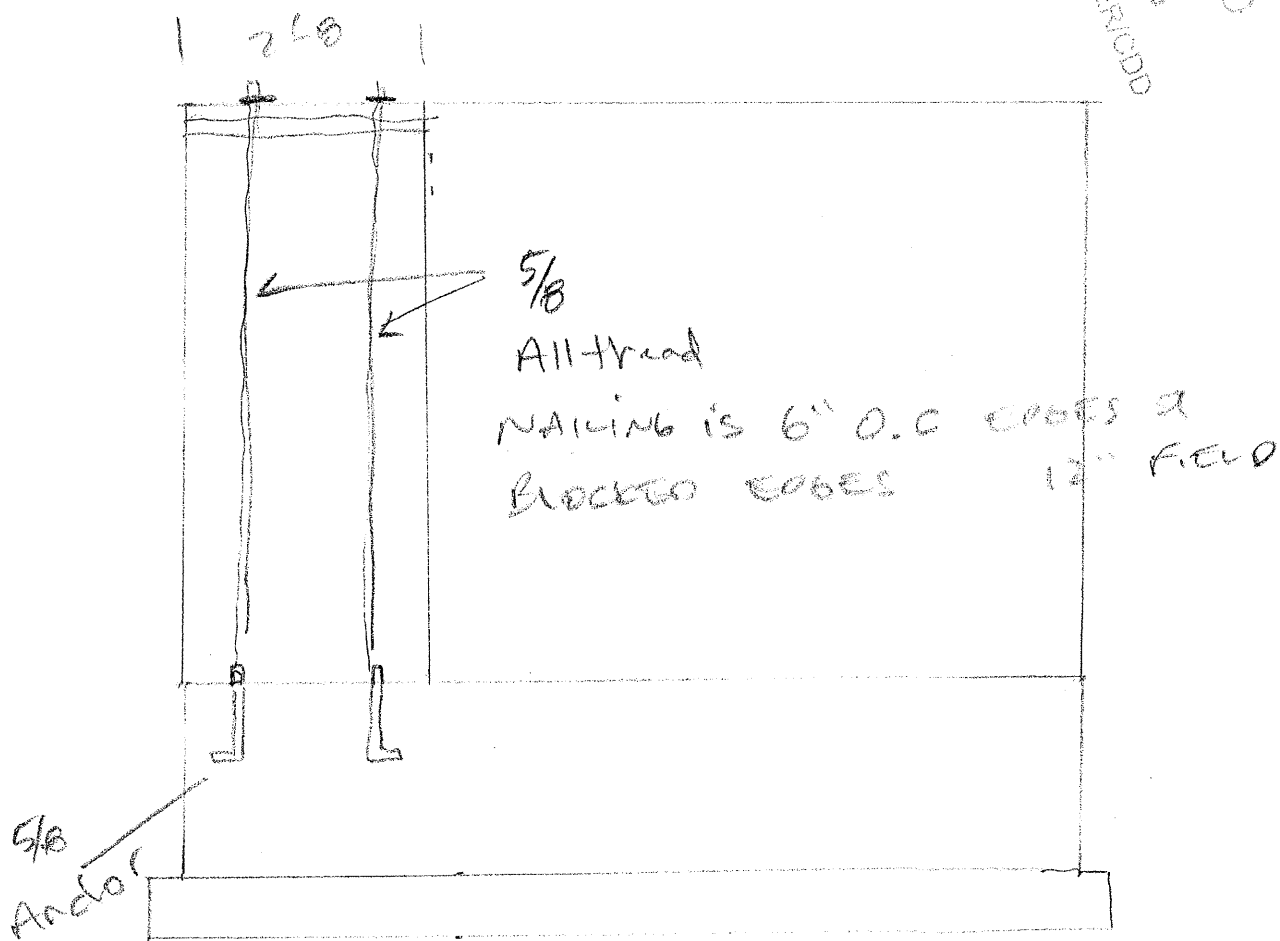 ER/CDD
5/8
All thread
NAILING is 6" O.C EDGES &
BLOCKED EDGES 12" FIELD
5/8
Anchor